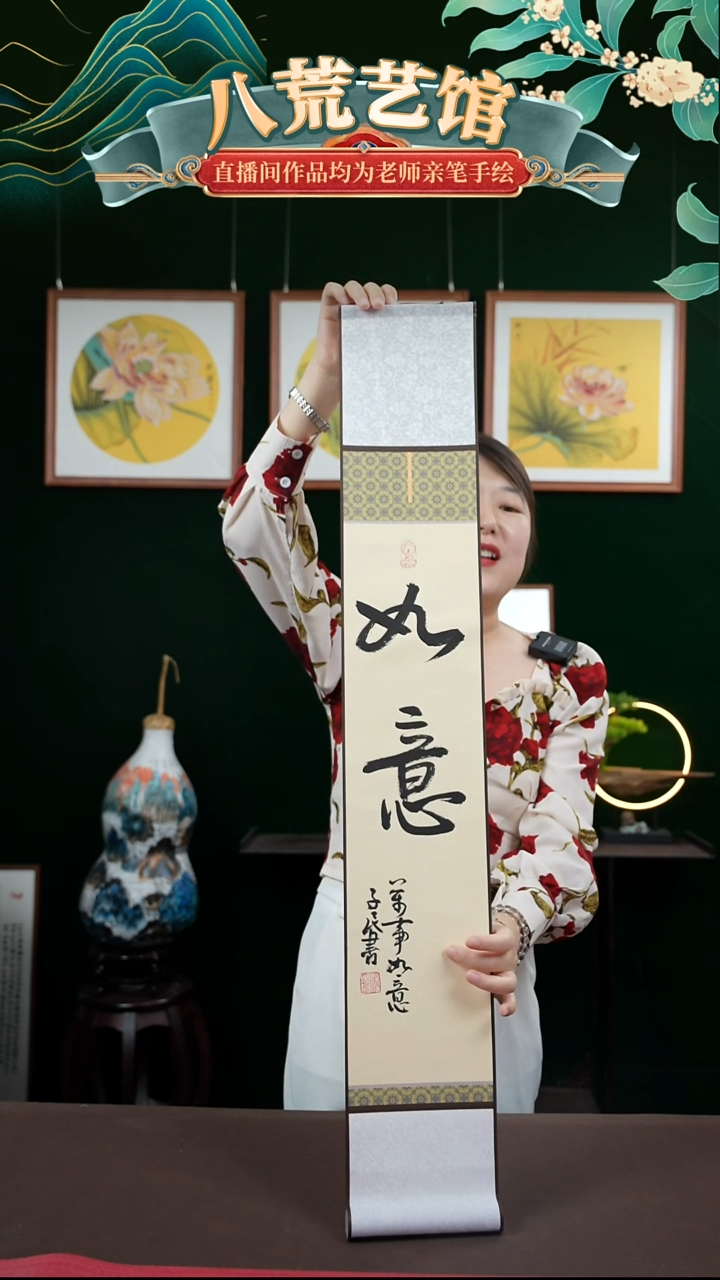 八荒艺馆
直播间作品均为老师亲笔手绘
如意
万事如意